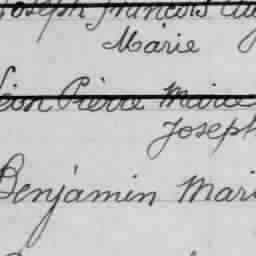 Joseph François
Marie
Pierre Marie
Joseph
Benjamin Mari